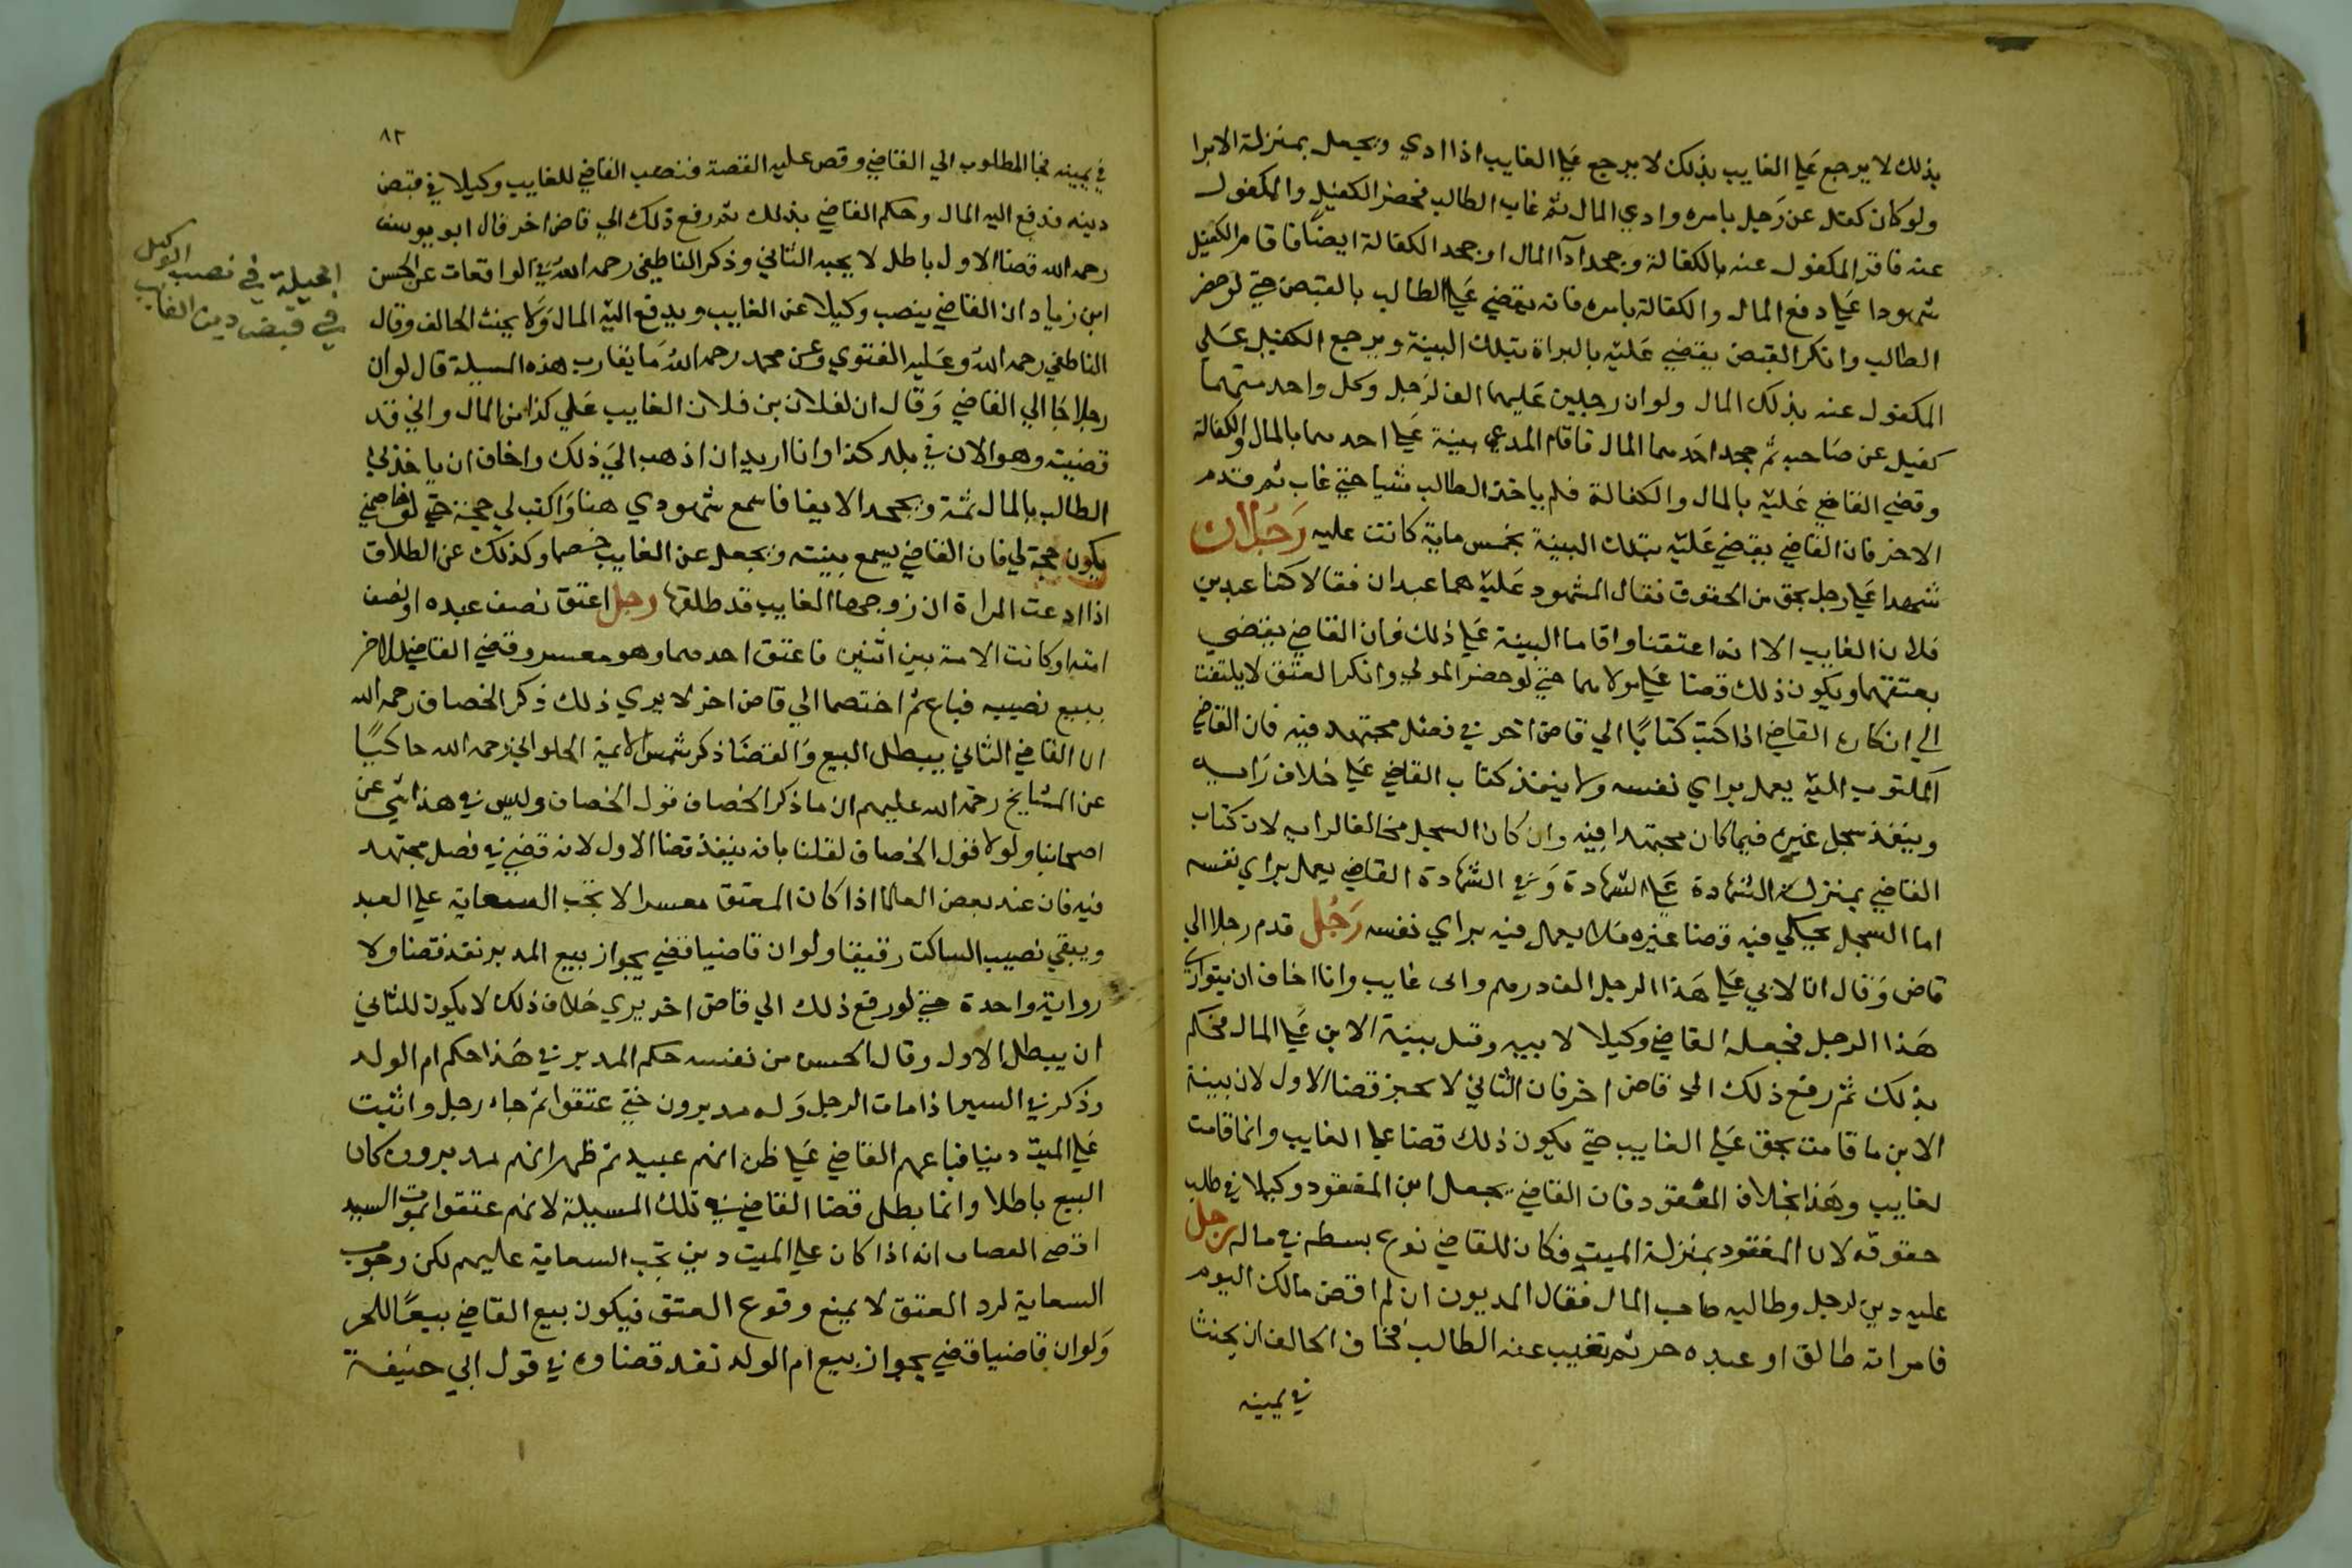 بذلك لا يرجع علي الغايب بذلك لا يرجع علي الغايب اذا ادي ويجعل بمنزلة الابرا
ولو كان كفل عن رجل بامره وادي المال ثم غاب الطالب فحضر الكفيل والمكفول
عنه فاقر المكفول عنه بالكفالة وجحد ادآ المال او جحد الكفالة ايضا فاقام الكفيل
شهودا علي دفع المال والكفالة بامره فانه يقضي علي الطالب بالقبض حتي لو حضر
الطالب وانكر القبض يقضي عليه بالبراة بتلك البينة ويرجع الكفيل علي
المكفول عنه بذلك المال ولو ان رجلين عليهما الف لرجل وكل واحد منهما
كفيل عن صاحبه ثم جحد احدهما المال فاقام المدعي بينة علي احدهما بالمال والكفالة
وقضي القاضي عليه بالمال والكفالة فلم ياخذ الطالب شيا حتي غاب ثم قدم
الاخر فان القاضي يقضي عليه بتلك البينة بخمس ماية كانت عليه رجلان
شهدا علي رجل بحق من الحقوق فقال المشهود عليه هما عبدان فقالا كنا عبدين
فلان الغايب الا انه اعتقنا واقاما البينة علي ذلك فان القاضي يقضي
بعتقهما ويكون ذلك قضا علي مولاهما حتي لو حضر المولي وانكر العتق لا يلتفت
الي انكاره القاضي اذا كتب كتابًا الي قاض اخر في فصل مجتهد فيه فان القاضي
المكتوب اليه يعمل براي نفسه ولا ينفذ كتاب القاضي علي خلاف رايه
وينفذ سجل غيره فيما كان مجتهدا فيه وان كان السجل مخالفا لرايه لان كتاب
القاضي بمنزلة الشهادة علي الشهادة وفي الشهادة القاضي يعمل براي نفسه
اما السجل يحكي فيه قضا غيره فلا يعمل فيه براي نفسه رجل قدم رجلا الي
قاض وقال ان لابي علي هذا الرجل الف درهم وابي غايب وانا اخاف ان يتواري
هذا الرجل فجعله القاضي وكيلا لابيه وقبل بينة الابن علي المال فحكم
بذلك ثم رفع ذلك الي قاض اخر فان الثاني لا يجيز قضا الاول لان بينة
الابن ما قامت بحق علي الغايب حتي يكون ذلك قضا علي الغايب وانما قامت
لغايب وهذا بخلاف المفقود فان القاضي يجعل ابن المفقود وكيلا في طلب
حقوقه لان المفقود بمنزلة الميت فكان للقاضي نوع بسطه في ماله رجل
عليه دين لرجل وطالبه صاحب المال فقال المديون ان لم اقض مالك اليوم
فامراته طالق او عبده حر ثم تغيب عنه الطالب فخاف الحالف ان يحنث
في يمينه
٨٢
في يمينه فجا المطلوب الي القاضي وقص عليه القصة فنصب القاضي للغايب وكيلا في قبض
دينه فدفع اليه المال وحكم القاضي بذلك ثم رفع ذلك الي قاض اخر قال ابو يوسف
رحمه الله قضا الاول باطل لا يجيه الثاني وذكر الناطفي رحمه الله في الواقعات عن الحسن
ابن زياد ان القاضي ينصب وكيلا عن الغايب ويدفع اليه المال ولا يحنث الحالف وقال
الناطفي رحمه الله وعليه الفتوي وعن محمد رحمه الله ما يقارب هذه المسيلة قال لو ان
رجلا جا الي القاضي وقال ان لفلان بن فلان الغايب علي كذا من المال واني قد
قضيته وهو الان في بلد كذا وانا اريد ان اذهب الي ذلك واخاف ان ياخذني
الطالب بالمال ثمة ويجحد الايفا فاسمع شهودي هنا واكتب لي حجة حتي لو خاصمني
يكون حجة لي فان القاضي يسمع بينته ويجعل عن الغايب خصما وكذلك عن الطلاق
اذا ادعت المراة ان زوجها الغايب قد طلقها رجل اعتق نصف عبده او نصف
امته او كانت الامة بين اثنين فاعتق احدهما وهو معسر وقضي القاضي للاخر
ببيع نصيبه فباع ثم اختصما الي قاض اخر لا يري ذلك ذكر الخصاف رحمه الله
ان القاضي الثاني يبطل البيع والقضا ذكر شمس الايمة الحلواني رحمه الله حاكيًا
عن المشايخ رحمة الله عليهم ان ما ذكر الخصاف قول الخصاف وليس في هذا شي عن
اصحابنا ولولا قول الخصاف لقلنا بانه ينفذ قضا الاول لانه قضي في فصل مجتهد
فيه فان عند بعض العلما اذا كان المعتق معسرا لا تجب السعاية علي العبد
ويبقي نصيب الساكت رقيقا ولو ان قاضيا قضي بجواز بيع المدبر نفذ قضاوه
رواية واحدة حتي لو رفع ذلك الي قاض اخر يري خلاف ذلك لا يكون للثاني
ان يبطل الاول وقال الحسن من نفسه حكم المدبر في هذا حكم ام الولد
وذكر في السير اذا مات الرجل وله مدبرون حتي عتقوا ثم جاء رجل واثبت
علي الميت دينا فباعهم القاضي علي ظن انهم عبيد ثم ظهر انهم مدبرون كان
البيع باطلا وانما بطل قضا القاضي في تلك المسيلة لانهم عتقوا بموت السيد
اقصي انه اذا كان علي الميت دين تجب السعاية عليهم لكن وجوب
السعاية لرد العتق لا يمنع وقوع العتق فيكون بيع القاضي بيعًا للحر
ولو ان قاضيا قضي بجواز بيع ام الولد نفذ قضاوه في قول ابي حنيفة
الحيلة في نصب الوكيل
في قبض دين الغايب